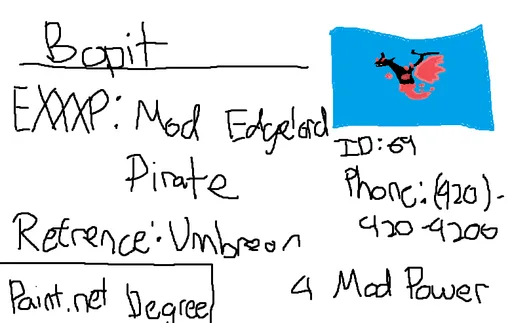 Bopit
EXXXP: Mod Edgelord
Pirate
Refrence: Umbreon
Paint.net Degree
ID: 69
Phone: (420)-
420-4200
4 Mod Power